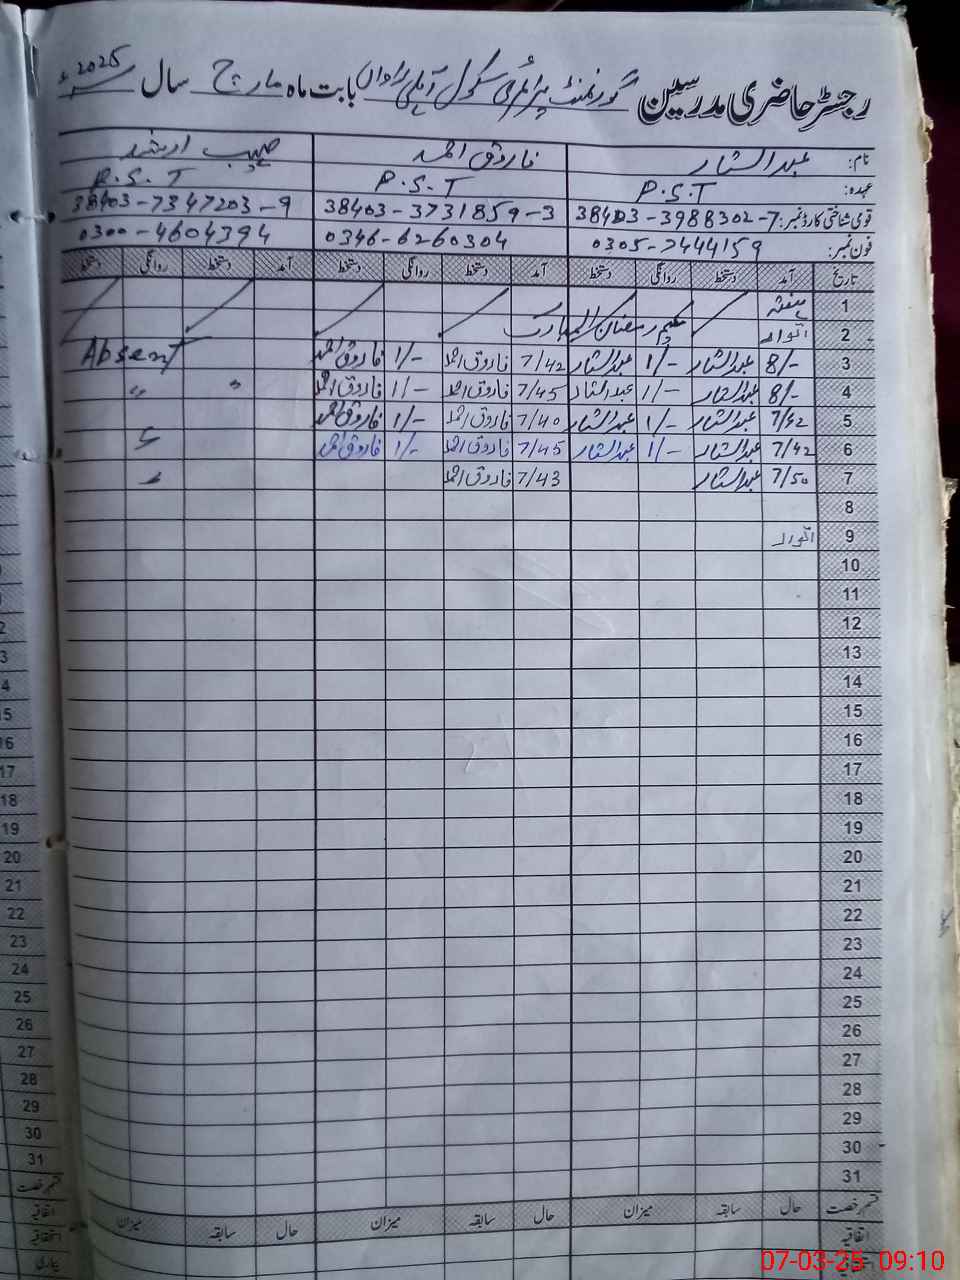 رجسٹر حاضری مدرسین گورنمنٹ پرائمری سکول آہلی راواں بابت ماہ مارچ سال 2025ء
نام: عبدالستار فاروق احمد حبیب ارشد
عہدہ: P.S.T P.S.T P.S.T
قومی شناختی کارڈ نمبر: 38403-3988302-7 38403-3731859-3 38403-7347203-9
فون نمبر: 0305-7444159 0346-6260304 0300-4604394
تاریخ آمد دستخط روانگی دستخط آمد دستخط روانگی دستخط آمد دستخط روانگی دستخط
1 ہفتہ
یکم رمضان المبارک
2 اتوار
3 8/- عبدالستار 1/- عبدالستار 7/42 فاروق احمد 1/- فاروق احمد Absent
4 8/- عبدالستار 1/- عبدالستار 7/45 فاروق احمد 1/- فاروق احمد " "
5 7/42 عبدالستار 1/- عبدالستار 7/40 فاروق احمد 1/- فاروق احمد
6 7/42 عبدالستار 1/- عبدالستار 7/45 فاروق احمد 1/- فاروق احمد
7 7/50 عبدالستار 7/43 فاروق احمد
8
9 اتوار
10
11
12
13
14
15
16
17
18
19
20
21
22
23
24
25
26
27
28
29
30
31
قسم رخصت حال سابقہ میزان حال سابقہ میزان حال سابقہ میزان
اتفاقیہ
استحقاقیہ
بیماری
07-03-25 09:10